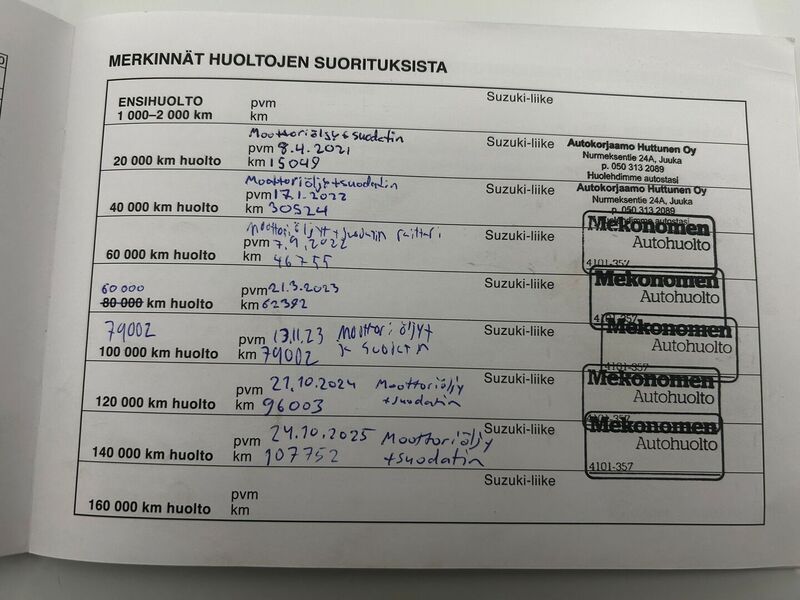 MERKINNÄT HUOLTOJEN SUORITUKSISTA
ENSIHUOLTO
1 000–2 000 km
pvm
km
Suzuki-liike
20 000 km huolto
Moottoriöljy+suodatin
pvm 8.4.2021
km 15049
Suzuki-liike
Autokorjaamo Huttunen Oy
Nurmeksentie 24A, Juuka
p. 050 313 2089
Huolehdimme autostasi
40 000 km huolto
Moottoriöljy+suodatin
pvm 17.1.2022
km 30524
Suzuki-liike
Autokorjaamo Huttunen Oy
Nurmeksentie 24A, Juuka
p. 050 313 2089
Huolehdimme autostasi
60 000 km huolto
Moottoriöljyt+suodatin
pvm 7.9.2022
km 46755
Suzuki-liike
Mekonomen
Autohuolto
4101-357
60 000
80 000 km huolto
pvm 21.3.2023
km 62382
Suzuki-liike
Mekonomen
Autohuolto
4101-357
79002
100 000 km huolto
pvm 13.11.23 Moottoriöljyt
km 79002
Suzuki-liike
Mekonomen
Autohuolto
4101-357
120 000 km huolto
pvm 21.10.2024 Moottoriöljy
km 96003 +suodatin
Suzuki-liike
Mekonomen
Autohuolto
4101-357
140 000 km huolto
pvm 24.10.2025 Moottoriöljy
km 107752 +suodatin
Suzuki-liike
Mekonomen
Autohuolto
4101-357
160 000 km huolto
pvm
km
Suzuki-liike